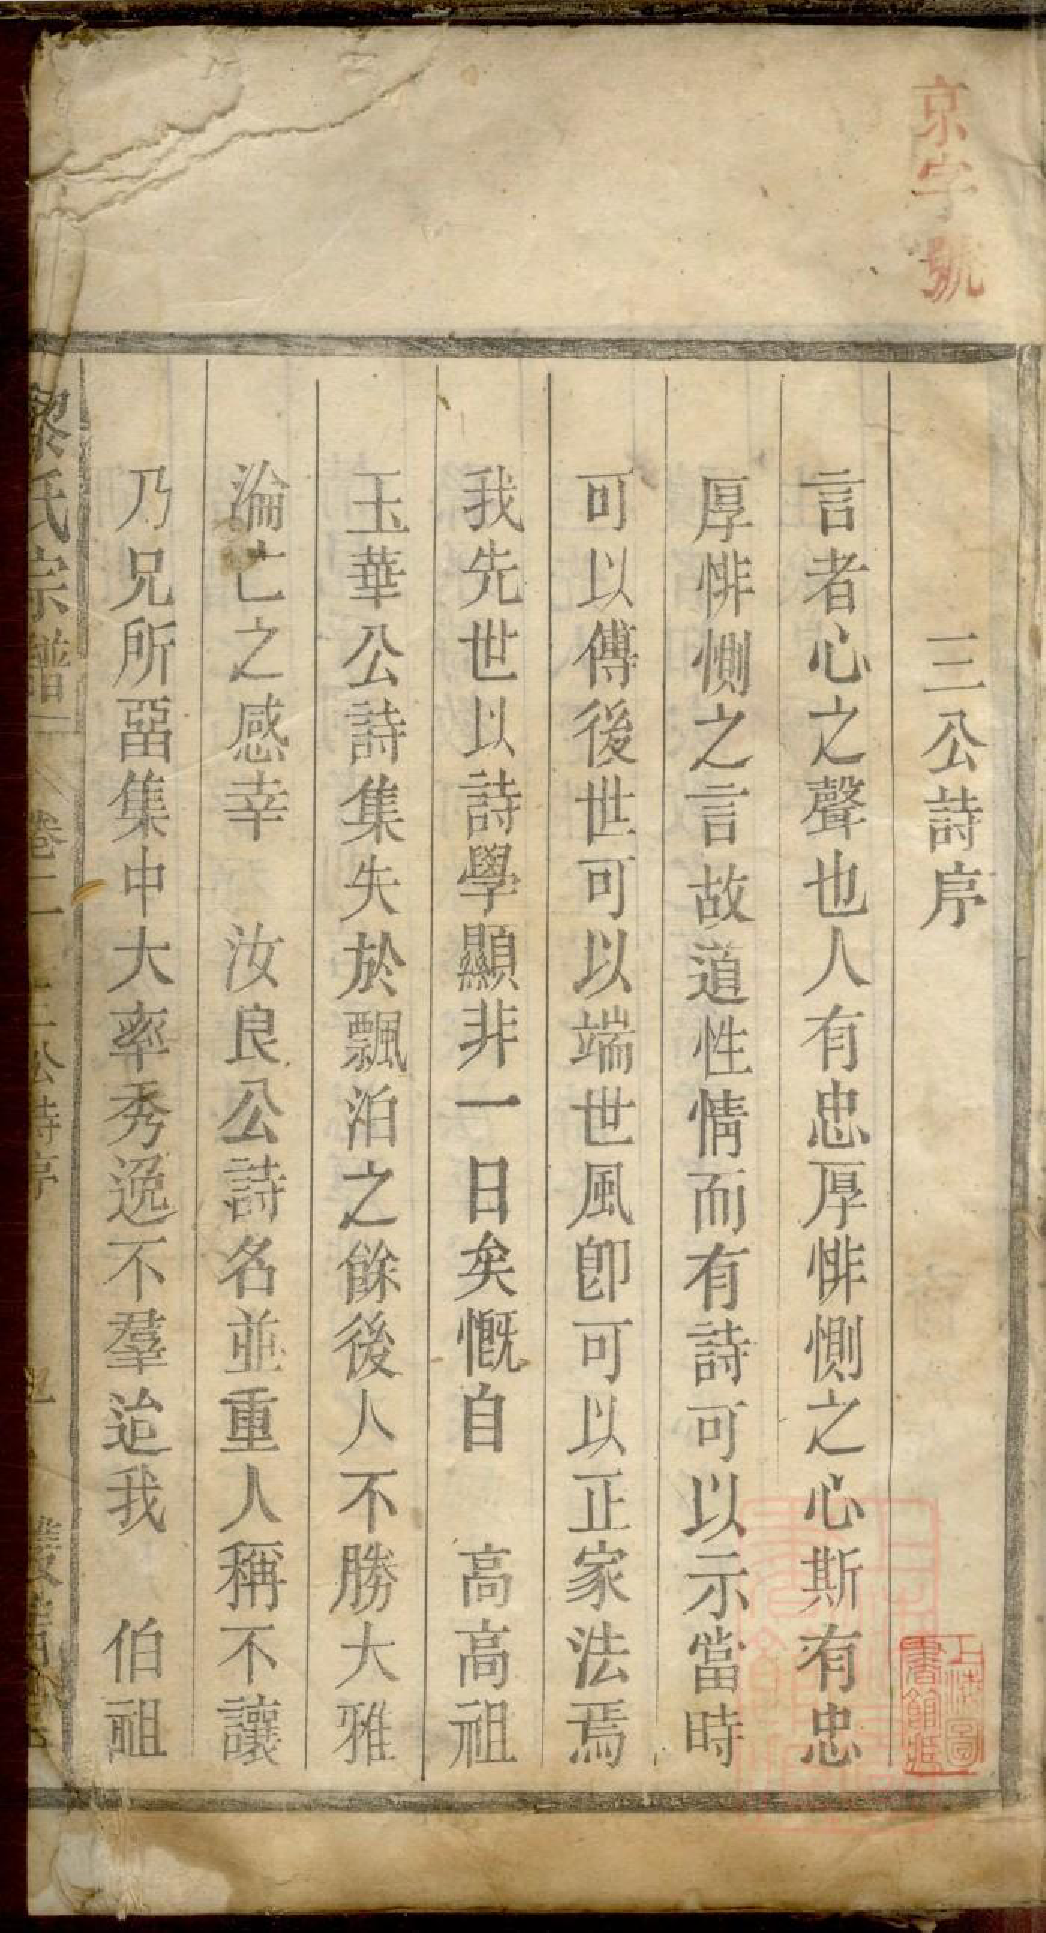 京字號
三公詩序
言者心之聲也人有忠厚悱惻之心斯有忠
厚悱惻之言故道性情而有詩可以示當時
可以傳後世可以端世風卽可以正家法焉
我先世以詩學顯非一日矣慨自　高高祖
玉華公詩集失於飄泊之餘後人不勝大雅
淪亡之感幸　汝良公詩名並重人稱不讓
乃兄所畱集中大率秀逸不羣迨我　伯祖
黎氏宗譜
卷二
三公詩序
上海圖書館藏